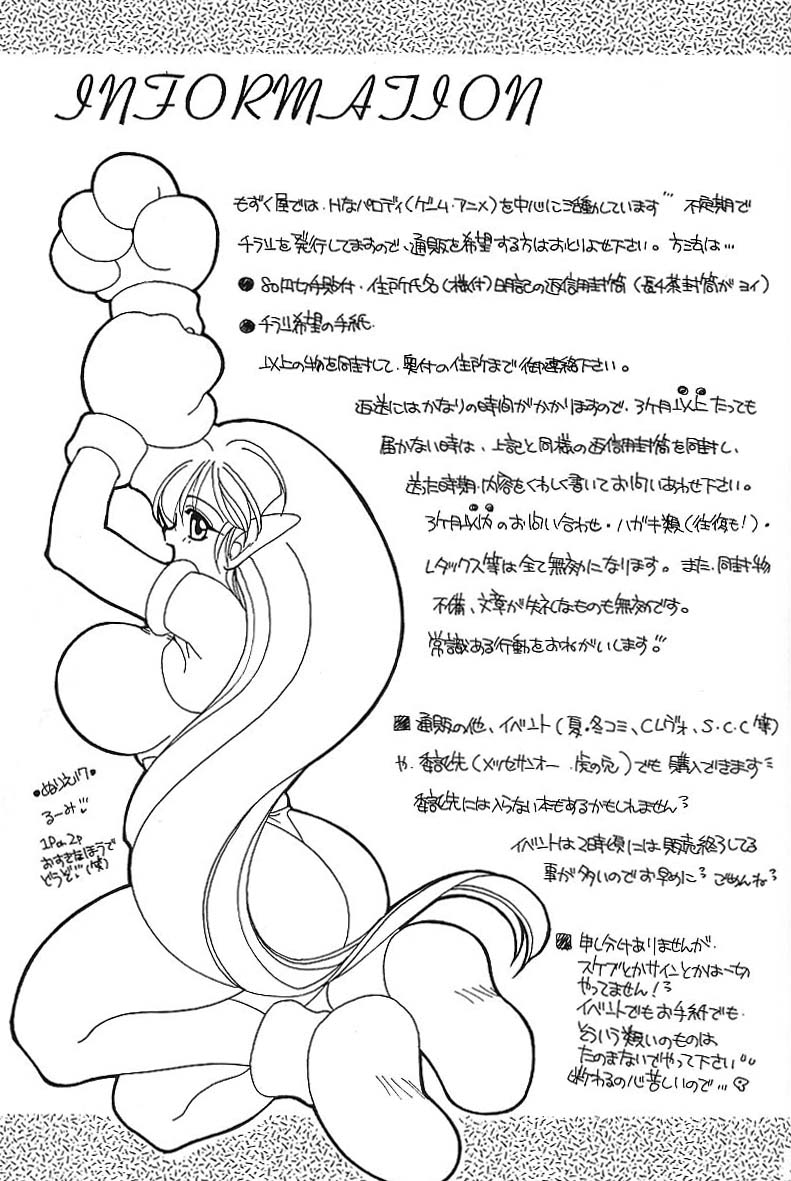 INFORMATION
もずく屋では、Hなパロディ(ゲーム・アニメ)を中心に活動しています 不定期で
チラシを発行してますので、通販を希望する方はおとりよせ下さい。方法は…
●80円切手貼付・住所氏名(様付)明記の返信用封筒(長4茶封筒がヨイ)
●チラシ希望の手紙.
以上の物を同封して、奥付の住所まで御連絡下さい。
返送にはかなりの時間がかかりますので、3ヶ月以上たっても
届かない時は、上記と同様の返信用封筒を同封し、
送った時期・内容をくわしく書いてお問いあわせ下さい。
3ヶ月以内のお問い合わせ・ハガキ類(往復も!)・
Lタックス等は全て無効になります。また、同封物
不備、文章が失礼なものも無効です。
常識ある行動をおねがいします
通販の他、イベント(夏・冬コミ、Cレヴォ、S.C.C等)
や、委託先(メッセサンオー、虎の穴)でも購入できます
委託先には入らない本もあるかもしれません
イベントは2時頃には販売終了してる
事が多いのでお早めに ごめんね
申し分けありませんが、
スケブとかサインとかは一切
やってません!
イベントでもお手紙でも、
そういう類いのものは
たのまないでやって下さい
断わるの心苦しいので…
ぬりえ
るーみ
1P or 2P
おすきなほうで
どうぞ(笑)